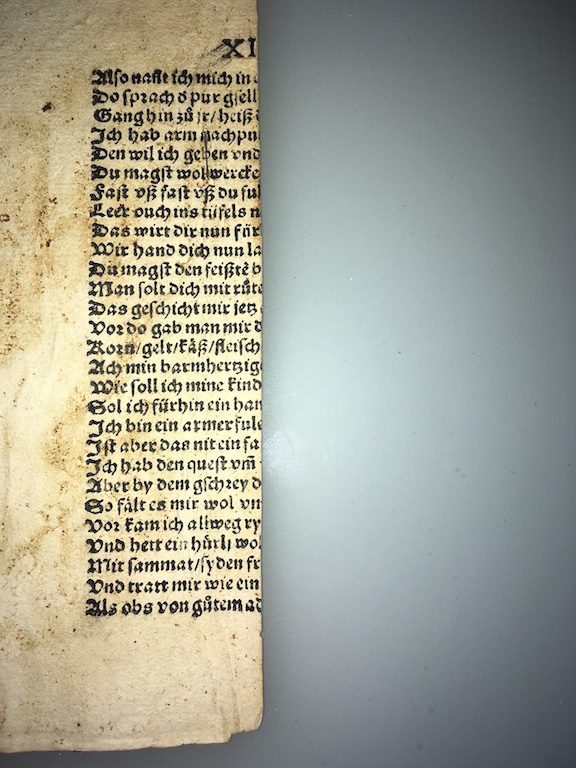 XI
Also nafft ich mich in
Do sprach d pur gsell
Gang hin zů jr/ heiß
Ich hab arm nachpu
Den wil ich geben vnd
Du magst wol wercke
Fast vß fast vß du ful
Leer ouch ins tüfels n
Das wirt dir nun für
Wir hand dich nun la
Du magst den feißtē b
Man solt dich mit růte
Das geschicht mir jetz
Vor do gab man mir d
Korn/gelt/käß/fleisch
Ach min barmhertzig
Wie soll ich mine kind
Sol ich fürhin ein han
Ich bin ein armer fule
Ist aber das nit ein fa
Ich hab den quest vm̄
Aber by dem gschrey d
So fält es mir wol vn
Vor kam ich allweg ry
Vnd hett ein hürli wol
Mit sammat/syden fr
Vnd tratt mir wie ein
Als obs von gůtem ad